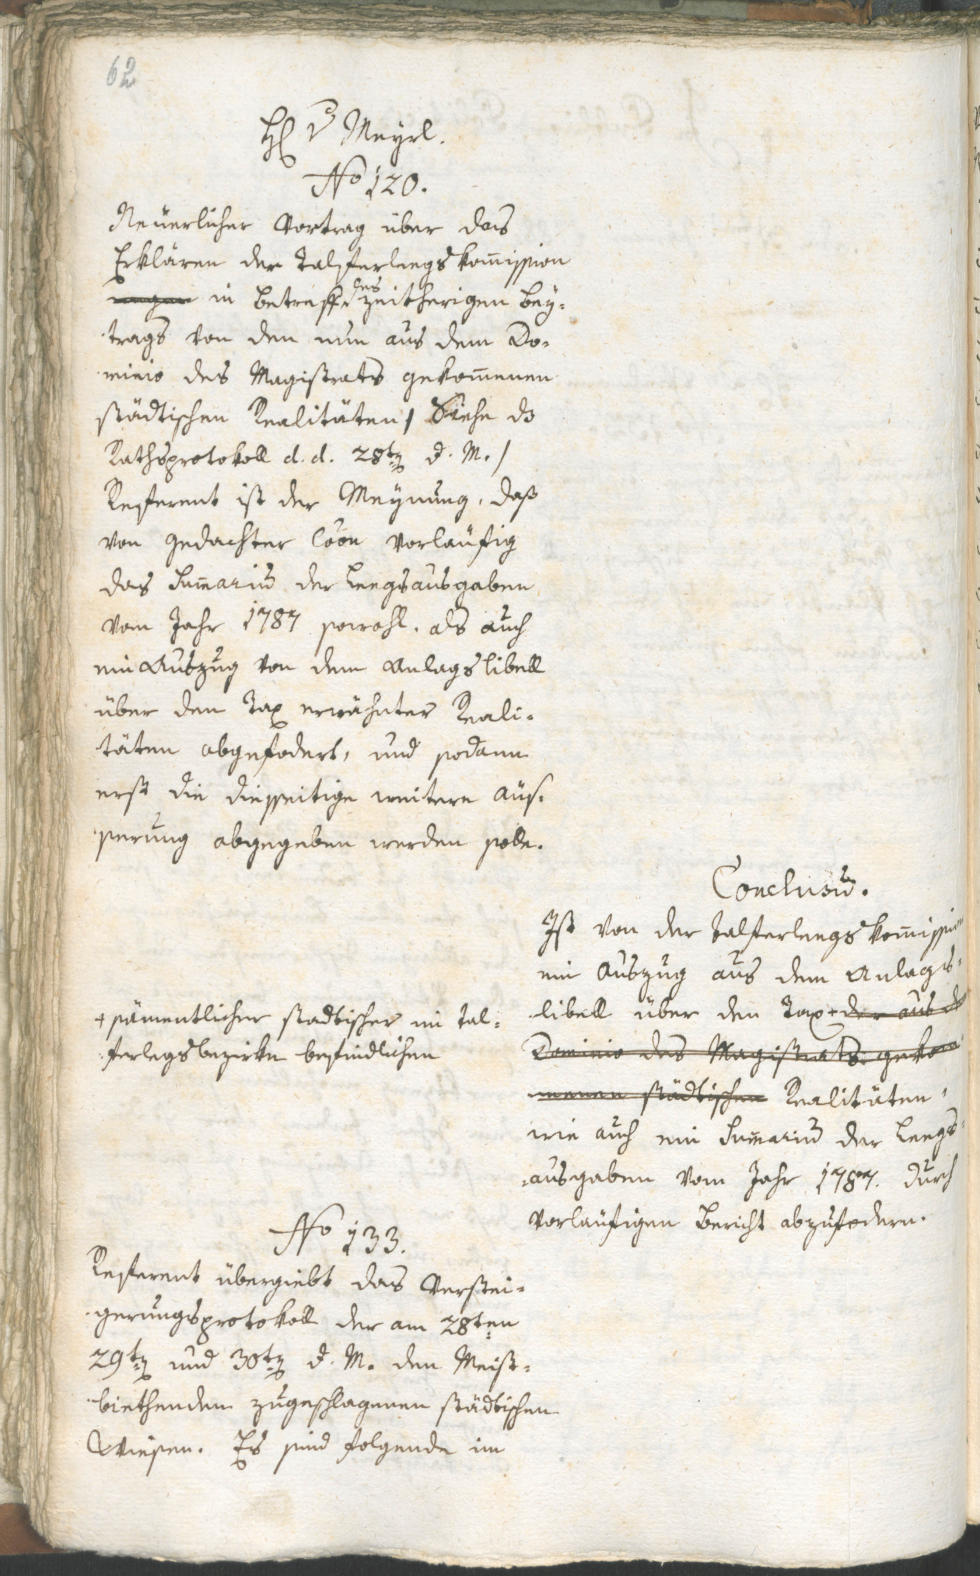 62
H v Meyrl.
No 120.
Neuerlicher Vortrag über das
Erklären der Talferleegskom̅ission
wegen in Betreff des zeitherigen Bey-
trags von den nun aus dem Do-
minio des Magistrats gekom̅enen
städtischen Realitäten / Siehe
Rathsprotokoll d. d. 28t d. M. /
Referent ist der Meynung, daß
von gedachter Coõn vorläufig
das Sum̅ariu̅ der Leegsausgaben
vom Jahr 1787 sowohl, als auch
ein Auszug von dem Anlagslibell
über den Tax erwähnter Reali-
täten abgefodert, und sodann
erst die diesseitige weitere Aüs-
serung abgegeben werden solle.
Conclusu̅.
Ist von der Talferleegskom̅ission
ein Auszug aus dem Anlags-
libell über den Tax + der aus d
Dominio des Magistrats gekom
menen städtischen Realitäten,
wie auch ein Sum̅ariu̅ der Leegs-
ausgaben vom Jahr 1787. durch
vorläufigen Bericht abzufodern.
+ sämentlicher stadtischer im Tal-
ferlegsbezirke befindlichen
No 133.
Referent übergiebt das Verstei-
gerungsprotokoll der am 28ten
29t und 30t d. M. den Meist-
biethenden zugeschlagenen städtischen
Wiesen. Es sind folgende im